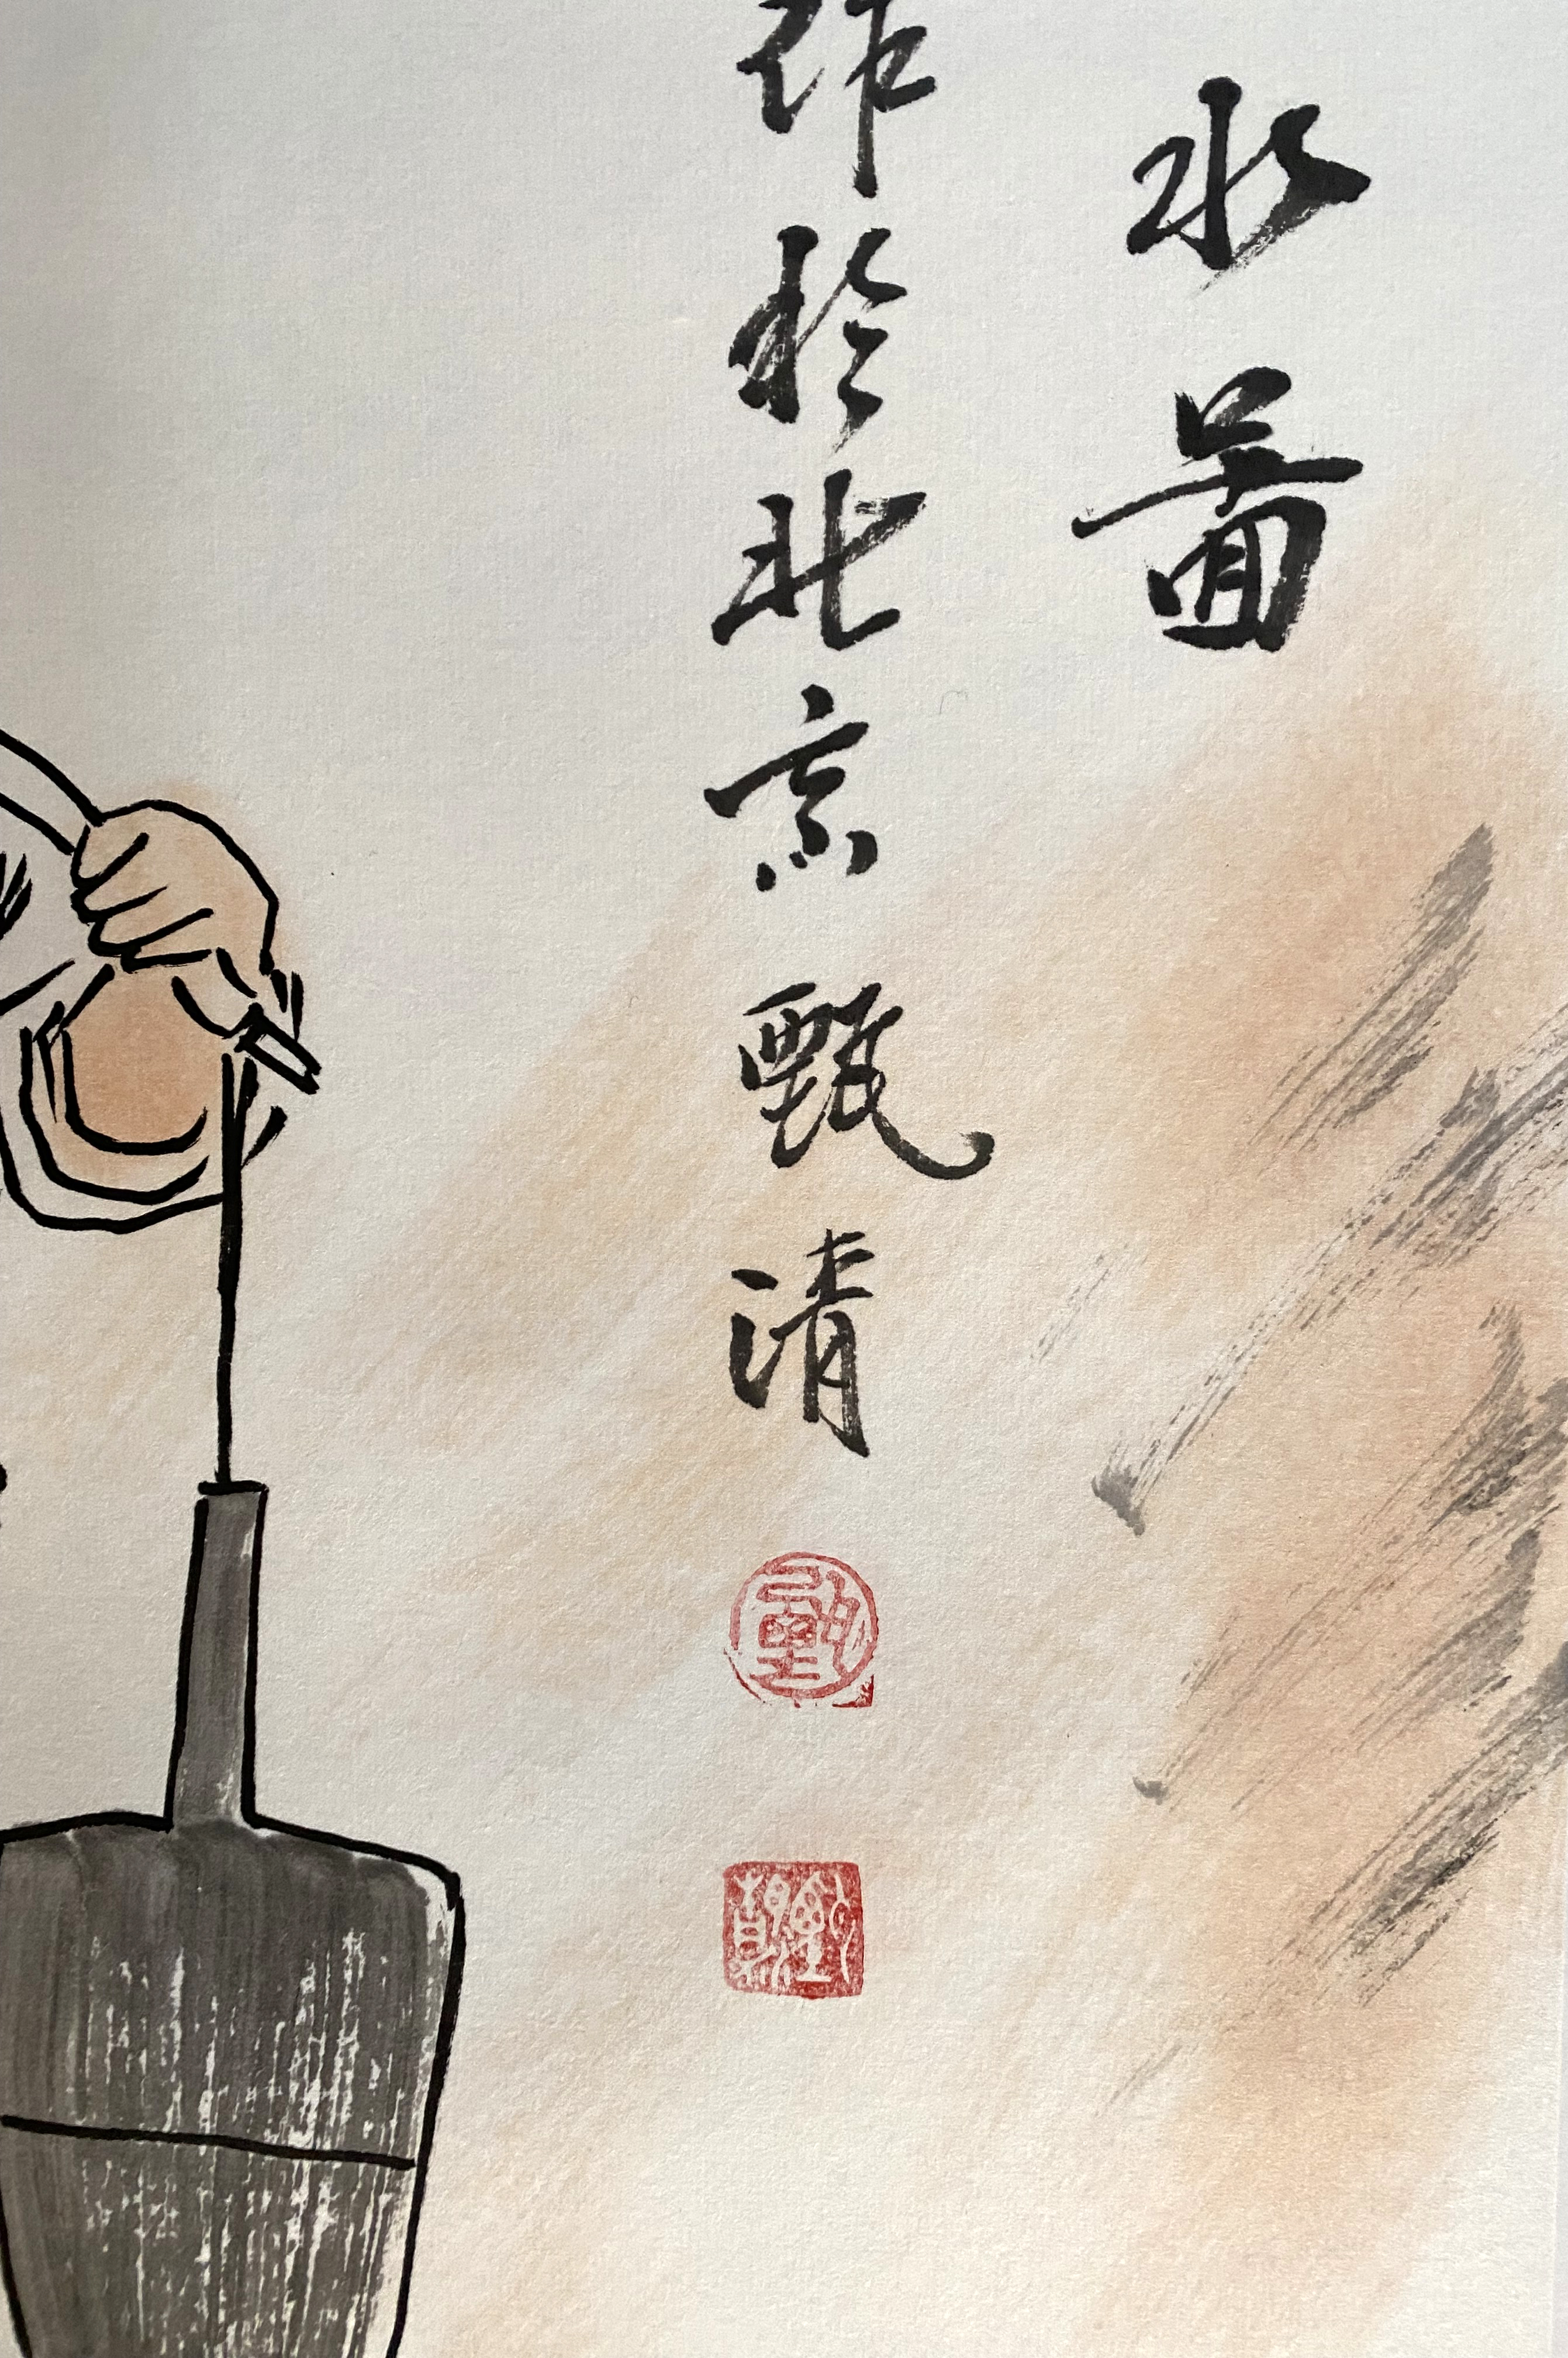 水圖
作於北京甄清